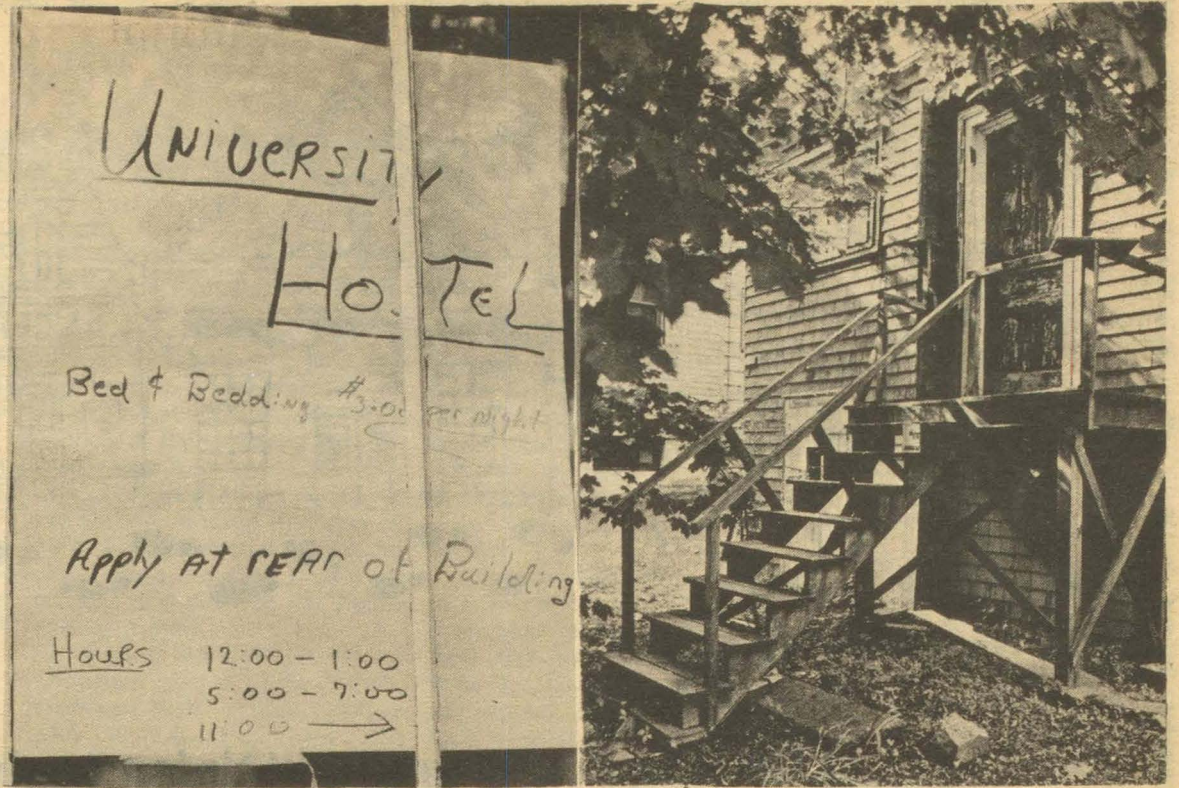 UNIVERSITY
HOSTEL
Bed & Bedding $3.00 per Night
Apply AT rEAr of Building
Hours 12:00 - 1:00
5:00 - 7:00
11:00 →